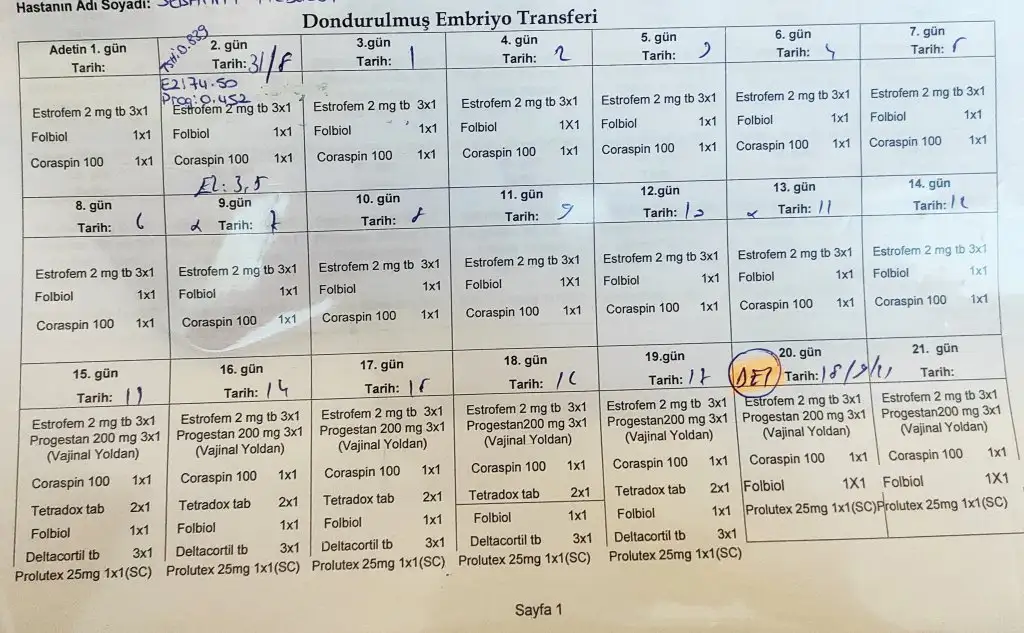 Hastanın Adı Soyadı:
Dondurulmuş Embriyo Transferi
Adetin 1. gün
Tarih:
Estrofem 2 mg tb 3x1
Folbiol 1x1
Coraspin 100 1x1
TSH:0.839
2. gün
Tarih: 31/8
E2:74.50
Prog:0.452
Estrofem 2 mg tb 3x1
Folbiol 1x1
Coraspin 100 1x1
3.gün
Tarih: 1
Estrofem 2 mg tb 3x1
Folbiol 1x1
Coraspin 100 1x1
4. gün
Tarih: 2
Estrofem 2 mg tb 3x1
Folbiol 1X1
Coraspin 100 1x1
5. gün
Tarih: 3
Estrofem 2 mg tb 3x1
Folbiol 1x1
Coraspin 100 1x1
6. gün
Tarih: 4
Estrofem 2 mg tb 3x1
Folbiol 1x1
Coraspin 100 1x1
7. gün
Tarih: 5
Estrofem 2 mg tb 3x1
Folbiol 1x1
Coraspin 100 1x1
8. gün
Tarih: 6
Estrofem 2 mg tb 3x1
Folbiol 1x1
Coraspin 100 1x1
3,5
9.gün
Tarih: 7
Estrofem 2 mg tb 3x1
Folbiol 1x1
Coraspin 100 1x1
10. gün
Tarih: 8
Estrofem 2 mg tb 3x1
Folbiol 1x1
Coraspin 100 1x1
11. gün
Tarih: 9
Estrofem 2 mg tb 3x1
Folbiol 1X1
Coraspin 100 1x1
12.gün
Tarih: 10
Estrofem 2 mg tb 3x1
Folbiol 1x1
Coraspin 100 1x1
13. gün
Tarih: 11
Estrofem 2 mg tb 3x1
Folbiol 1x1
Coraspin 100 1x1
14. gün
Tarih: 12
Estrofem 2 mg tb 3x1
Folbiol 1x1
Coraspin 100 1x1
15. gün
Tarih: 13
Estrofem 2 mg tb 3x1
Progestan 200 mg 3x1
(Vajinal Yoldan)
Coraspin 100 1x1
Tetradox tab 2x1
Folbiol 1x1
Deltacortil tb 3x1
Prolutex 25mg 1x1(SC)
16. gün
Tarih: 14
Estrofem 2 mg tb 3x1
Progestan 200 mg 3x1
(Vajinal Yoldan)
Coraspin 100 1x1
Tetradox tab 2x1
Folbiol 1x1
Deltacortil tb 3x1
Prolutex 25mg 1x1(SC)
17. gün
Tarih: 15
Estrofem 2 mg tb 3x1
Progestan 200 mg 3x1
(Vajinal Yoldan)
Coraspin 100 1x1
Tetradox tab 2x1
Folbiol 1x1
Deltacortil tb 3x1
Prolutex 25mg 1x1(SC)
18. gün
Tarih: 16
Estrofem 2 mg tb 3x1
Progestan200 mg 3x1
(Vajinal Yoldan)
Coraspin 100 1x1
Tetradox tab 2x1
Folbiol 1x1
Deltacortil tb 3x1
Prolutex 25mg 1x1(SC)
19.gün
Tarih: 17
Estrofem 2 mg tb 3x1
Progestan200 mg 3x1
(Vajinal Yoldan)
Coraspin 100 1x1
Tetradox tab 2x1
Folbiol 1x1
Deltacortil tb 3x1
Prolutex 25mg 1x1(SC)
DET
20. gün
Tarih: 18/9/21
Estrofem 2 mg tb 3x1
Progestan 200 mg 3x1
(Vajinal Yoldan)
Coraspin 100 1x1
Folbiol 1X1
Prolutex 25mg 1x1(SC)
21. gün
Tarih:
Estrofem 2 mg tb 3x1
Progestan200 mg 3x1
(Vajinal Yoldan)
Coraspin 100 1x1
Folbiol 1X1
Prolutex 25mg 1x1(SC)
Sayfa 1